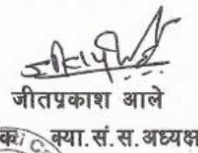 जीतप्रकाश आले
क्या.सं.स.अध्यक्ष